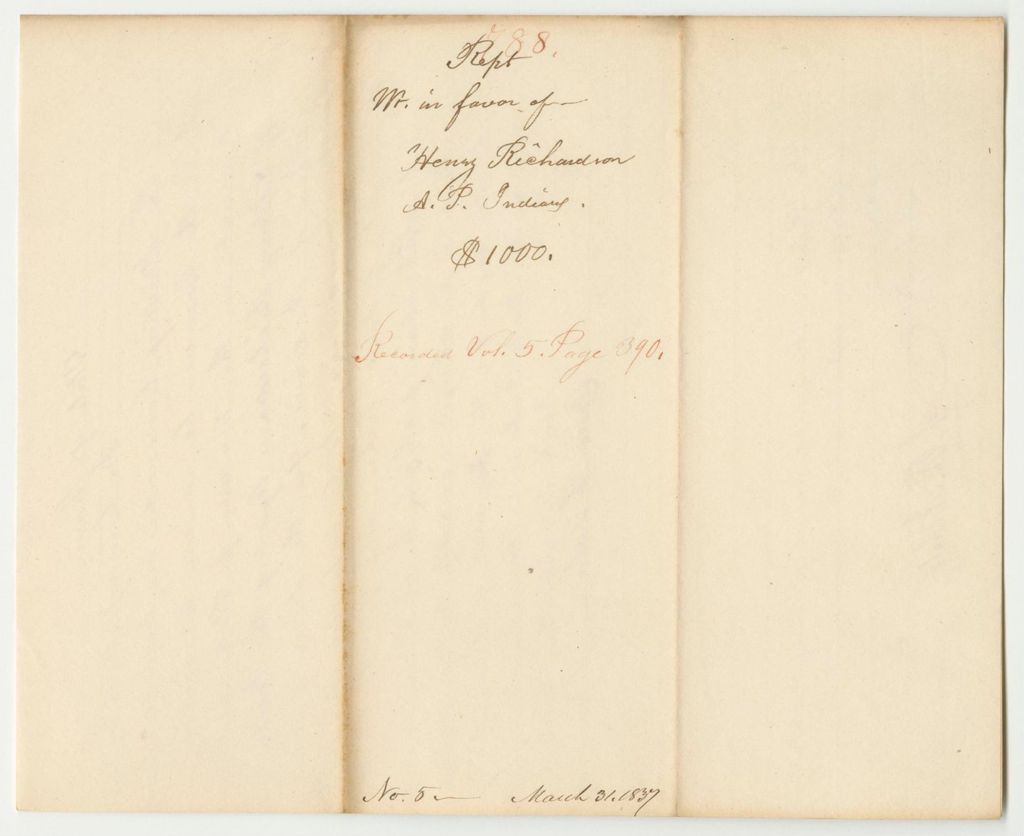 788.
Rept
Wt. in favor of
Henry Richardson
A. P. Indians.
$1000.
Recorded Vol. 5. Page 390.
No. 5 March 31. 1837